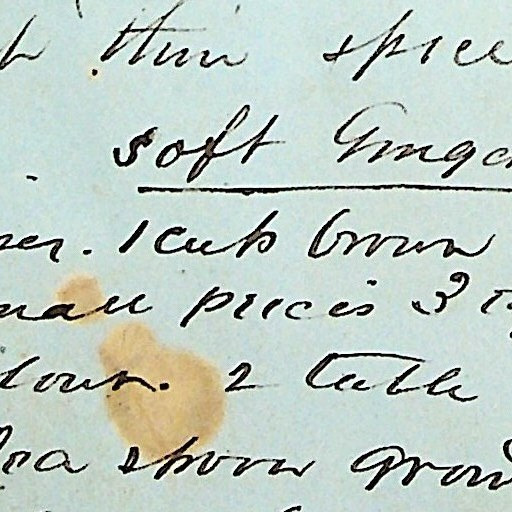 thin spice
soft Ginger
. 1 cub brown
small pieces 3
flour. 2 table
tea spoon ground